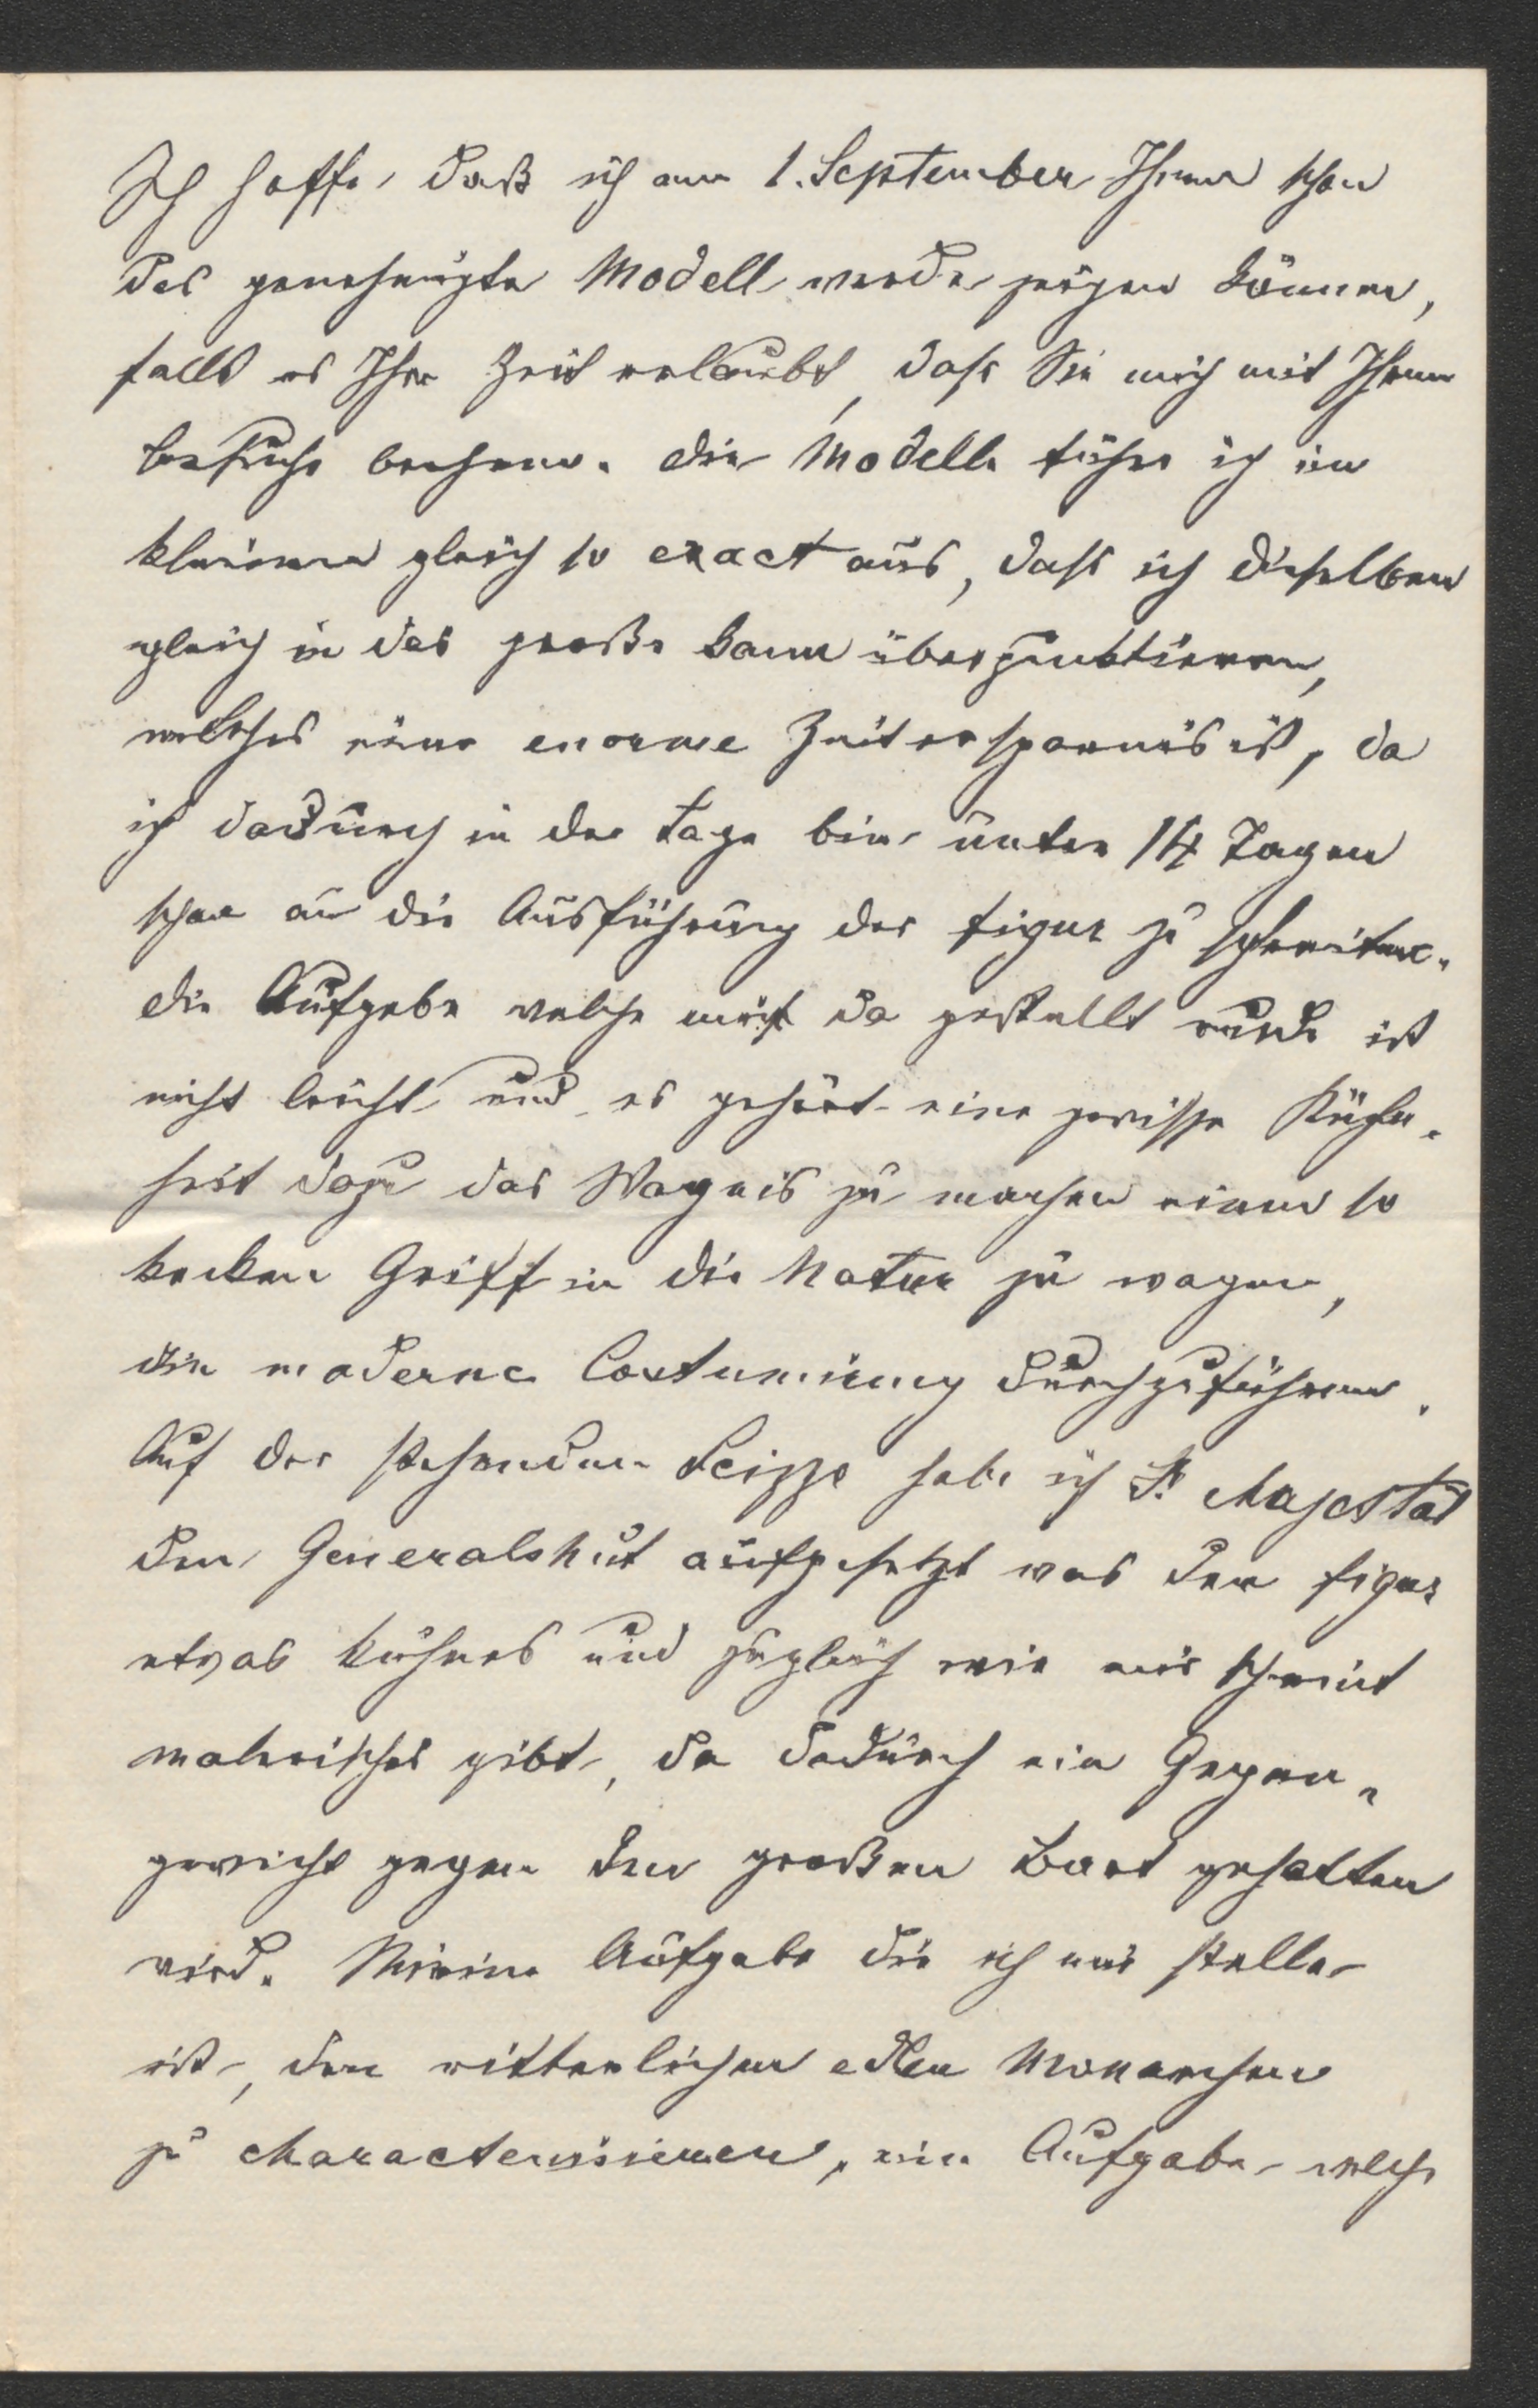 Ich hoffe, daß ich am 1. September Ihnen schon
das genehmigte Modell werde zeigen können,
falls es Ihre Zeit erlaubt, dass Sie mich mit Ihrem
besuche beehren. die Modelle führe ich im
kleinen gleich so exact aus, dass ich dieselben
gleich in das große kann überpunktieren,
welches eine enorme Zeitersparnis ist, da
ich dadurch in der Lage bin unter 14 Tagen
schon an die Ausführung der figur zu schreiten.
die Aufgabe welche mir da gestellt wurde ist
nicht leicht und es gehört eine gewisse Kühn-
heit dazu das Wagnis zu machen einen so
kecken Griff in die Natur zu wagen,
die moderne Costumirung durchzuführen.
Auf der stehenden Scizze habe ich Sr. Majestät
den Generalshut aufgesetzt was der figur
etwas kühnes und zugleich wie mir scheint
malerisches gibt, da dadurch ein Gegen-
gewicht gegen den großen Bart gehalten
wird. Meine Aufgabe die ich mir stelle
ist, den ritterlichen edlen Monarchen
zu characterisieren, eine Aufgabe welche